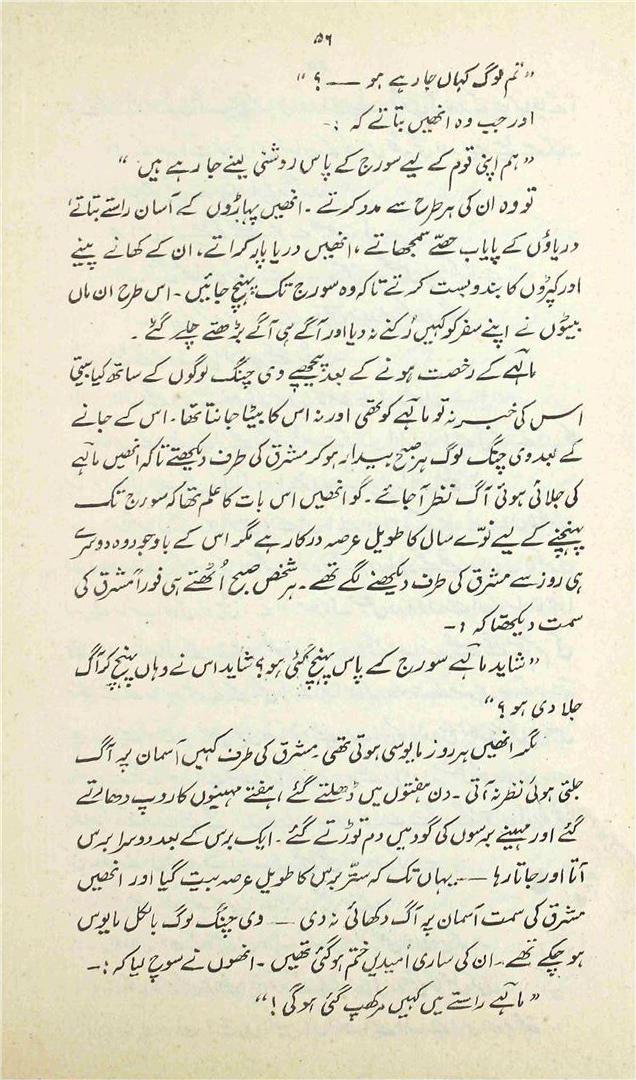 ۵۶
”تم لوگ کہاں جا رہے ہو ——؟“
اور جب وہ انھیں بتاتے کہ :-
”ہم اپنی قوم کے لیے سورج کے پاس روشنی لینے جا رہے ہیں“
تو وہ ان کی ہر طرح سے مدد کرتے ۔ انھیں پہاڑوں کے آسان راستے بتاتے
دریاؤں کے پایاب حصّے سمجھاتے ، انھیں دریا پار کراتے ، ان کے کھانے پینے
اور کپڑوں کا بندوبست کرتے تاکہ وہ سورج تک پہنچ جائیں ۔ اس طرح ان ماں
بیٹوں نے اپنے سفر کو کہیں رُکنے نہ دیا اور آگے ہی آگے بڑھتے چلے گئے ۔
مالہے کے رخصت ہونے کے بعد پیچھے وی چنگ لوگوں کے ساتھ کیا بیتی
اس کی خبر نہ تو مالہے کو تھی اور نہ اس کا بیٹا جانتا تھا ۔ اس کے جانے
کے بعد وی چنگ لوگ ہر صبح بیدار ہو کر مشرق کی طرف دیکھتے تاکہ انھیں مالہے
کی جلائی ہوئی آگ نظر آجائے ۔ گو انھیں اس بات کا علم تھا کہ سورج تک
پہنچنے کے لیے نوّے سال کا طویل عرصہ درکار ہے مگر اس کے باوجود وہ دوسرے
ہی روز سے مشرق کی طرف دیکھنے لگے تھے ۔ ہر شخص صبح اُٹھتے ہی فوراً مشرق کی
سمت دیکھتا کہ :-
”شاید مالہے سورج کے پاس پہنچ گئی ہو ؟ شاید اس نے وہاں پہنچ کر آگ
جلا دی ہو ؟“
مگر انھیں ہر روز مایوسی ہوتی تھی ۔ مشرق کی طرف کہیں آسمان پر آگ
جلتی ہوئی نظر نہ آتی ۔ دن ہفتوں میں ڈھلتے گئے ، ہفتے مہینوں کا روپ دھارتے
گئے اور مہینے برسوں کی گود میں دم توڑتے گئے ۔ ایک برس کے بعد دوسرا برس
آتا اور جاتا رہا —— یہاں تک کہ ستّر برس کا طویل عرصہ بیت گیا اور انھیں
مشرق کی سمت آسمان پر آگ دکھائی نہ دی —— وی چنگ لوگ بالکل مایوس
ہو چکے تھے ۔ ان کی ساری اُمیدیں ختم ہو گئی تھیں ۔ انھوں نے سوچ لیا کہ :-
”مالہے راستے میں کہیں مر کھپ گئی ہو گی !“